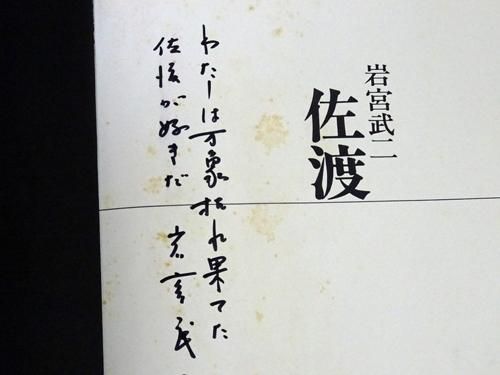 岩宮武二
佐渡
わたしは万象枯れ果てた
佐渡が好きだ 岩宮武